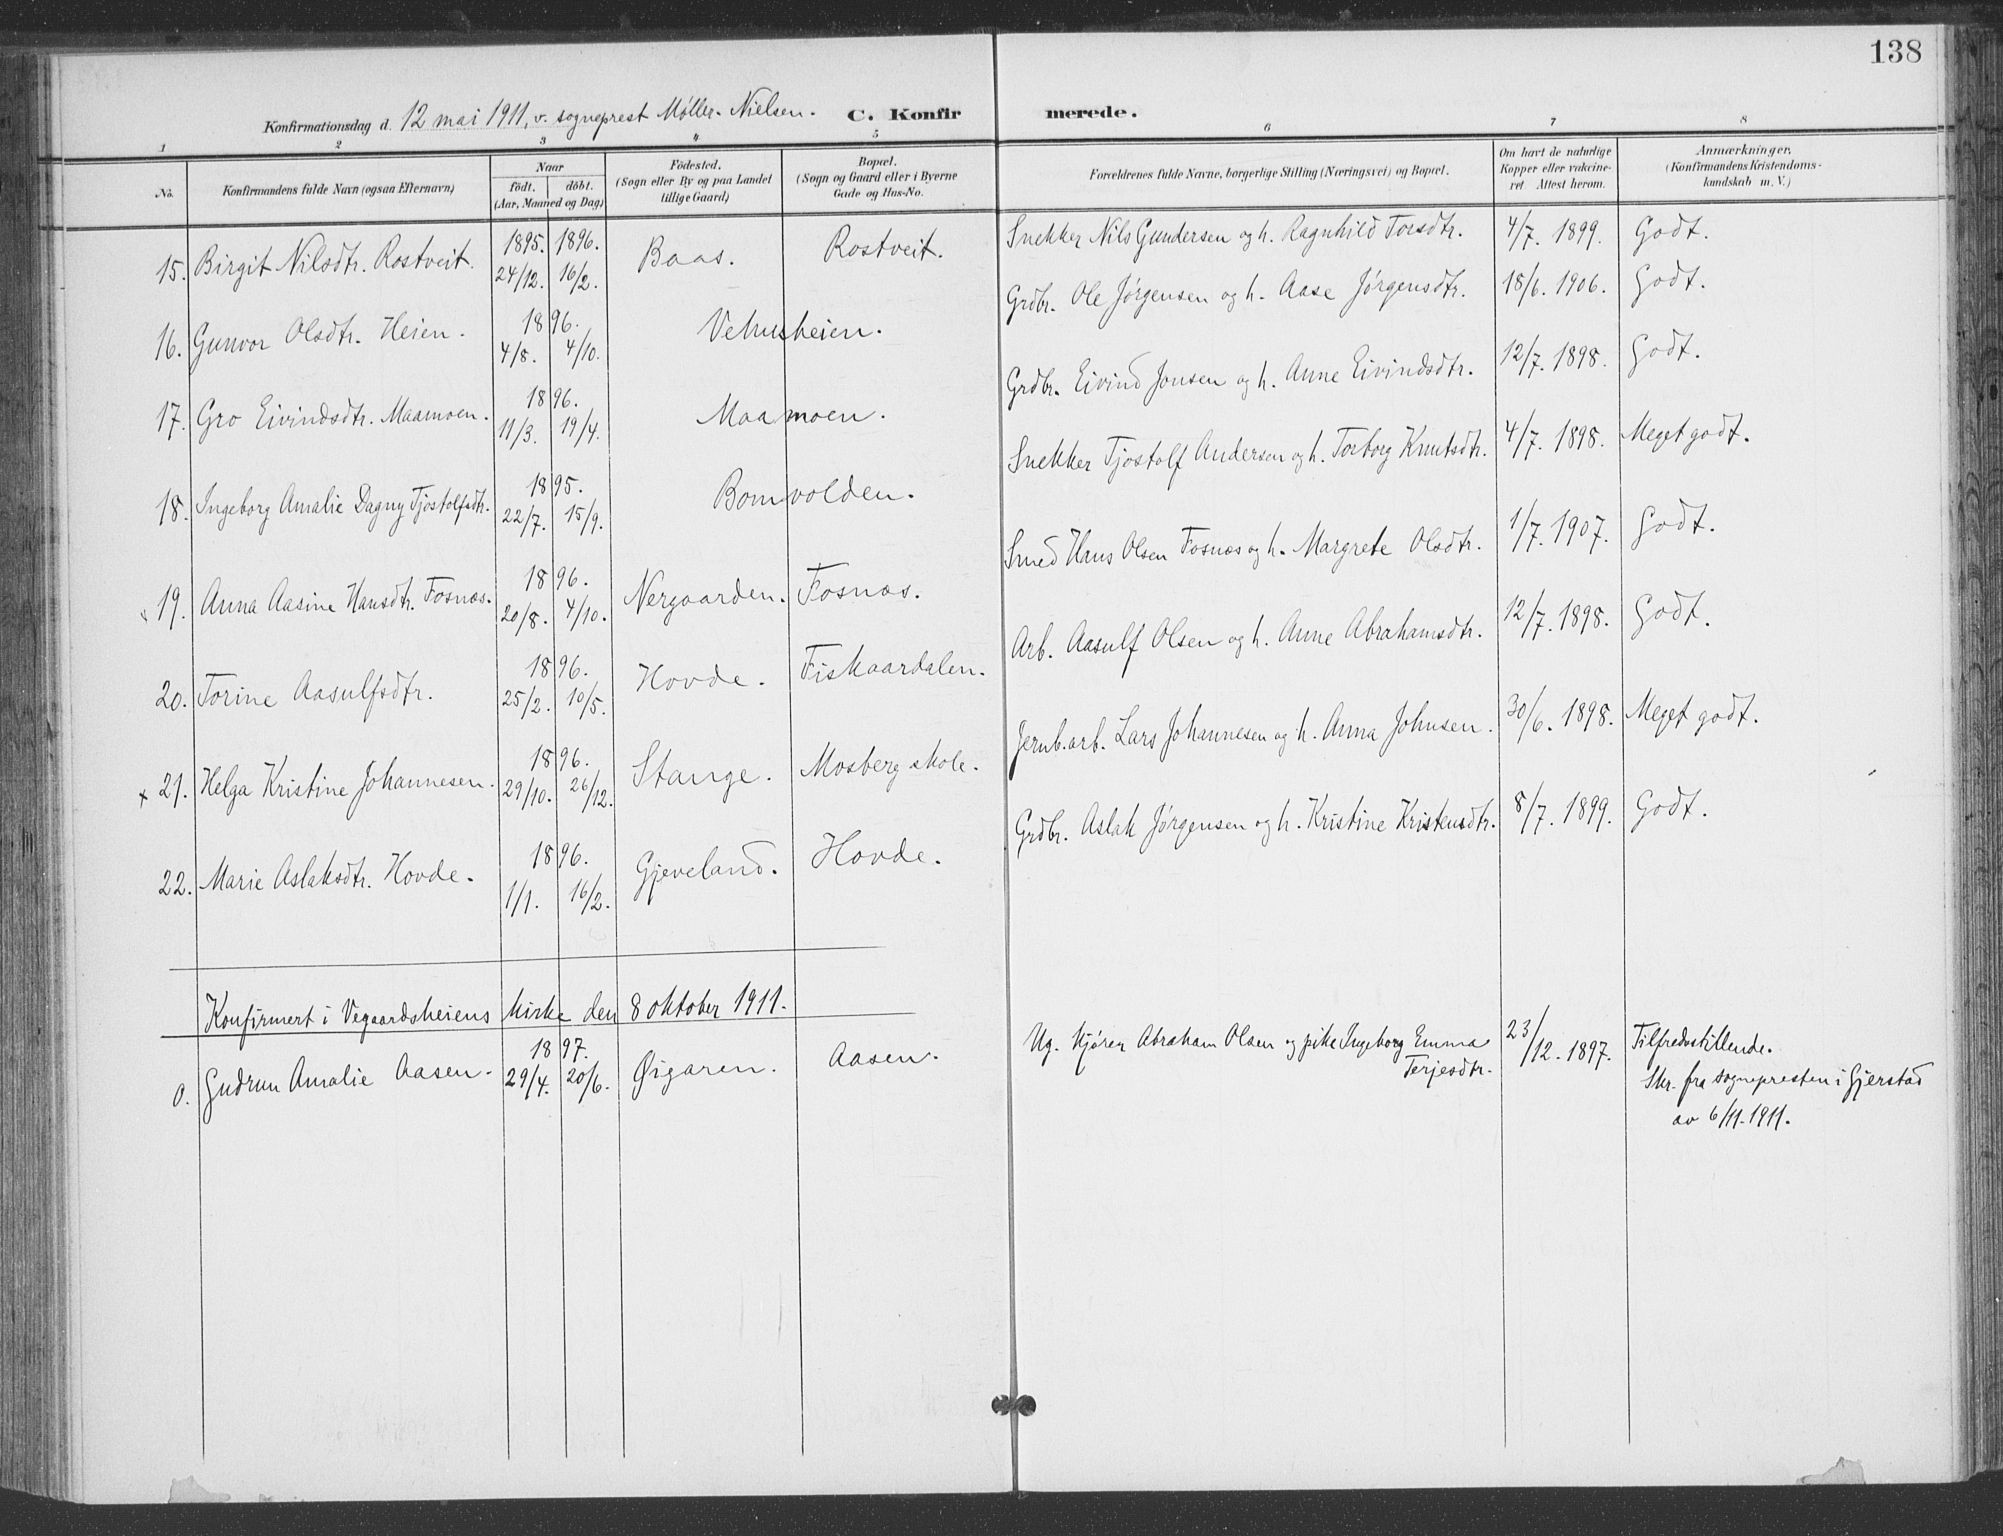 138
Konfirmationsdag d. 12 mai 1911, v. sogneprest Møller-Nielsen. C. Konfirmerede.
1 2 3 4 5 6 7 8
No. Konfirmandens fulde Navn (ogsaa Efternavn) Naar födt. döbt. (Aar, Maaned og Dag) Födested. (Sogn eller By og paa Landet tillige Gaard) Bopæl. (Sogn og Gaard eller i Byerne Gade og Hus-No. Forældrenes fulde Navne, borgerlige Stilling (Næringsvei) og Bopæl. Om havt de naturlige Kopper eller vakcineret. Attest herom. Anmærkninger. (Konfirmandens Kristendomskundskab m. V.)
15. Birgit Nilsdtr. Rostveit. 1895. 24/12. 1896. 16/2. Baas. Rostveit. Snekker Nils Gundersen og h. Ragnhild Torsdtr. 4/7. 1899. Godt.
16. Gunvor Olsdtr. Heien. 1896. 4/8. 4/10. Vehusheien. Grdbr. Ole Jørgensen og h. Aase Jørgensdtr. 18/6. 1906. Godt.
17. Gro Eivindsdtr. Maamoen. 1896. 11/3. 19/4. Maamoen. Grdbr. Eivind Jonsen og h. Anne Eivindsdtr. 12/7. 1898. Godt.
18. Ingeborg Amalie Dagny Tjostolfsdtr. 1895. 22/7. 15/9. Bomvolden. Snekker Tjostolf Andersen og h. Torborg Knutsdtr. 4/7. 1898. Meget godt.
19. Anna Aasine Hansdtr. Fosnæs. 1896. 20/8. 4/10. Nergaarden. Fosnæs. Smed Hans Olsen Fosnæs og h. Margrete Olsdtr. 1/7. 1907. Godt.
20. Torine Aasulfsdtr. 1896. 25/2. 10/5. Hovde. Fiskaardalen. Arb. Aasulf Olsen og h. Anne Abrahamsdtr. 12/7. 1898. Godt.
x 21. Helga Kristine Johannesen. 1896. 29/10. 26/12. Stange. Mosberg skole. Jernb.arb. Lars Johannesen og h. Anna Johnsen. 30/6. 1898. Meget godt.
22. Marie Aslaksdtr. Hovde. 1896. 1/1. 16/2. Gjeveland. Hovde. Grdbr. Aslak Jørgensen og h. Kristine Kristensdtr. 8/7. 1899. Godt.
Konfirmert i Vegaardsheiens kirke den 8 oktober 1911.
0. Gudrun Amalie Aasen. 1897. 29/4. 20/6. Øigaren. Aasen. Ug. Kjører Abraham Olsen og pike Ingeborg Emma Terjesdtr. 23/12. 1897. Tilfredsstillende.
Skr. fra sognepresten i Gjerstad
av 6/11.1911.